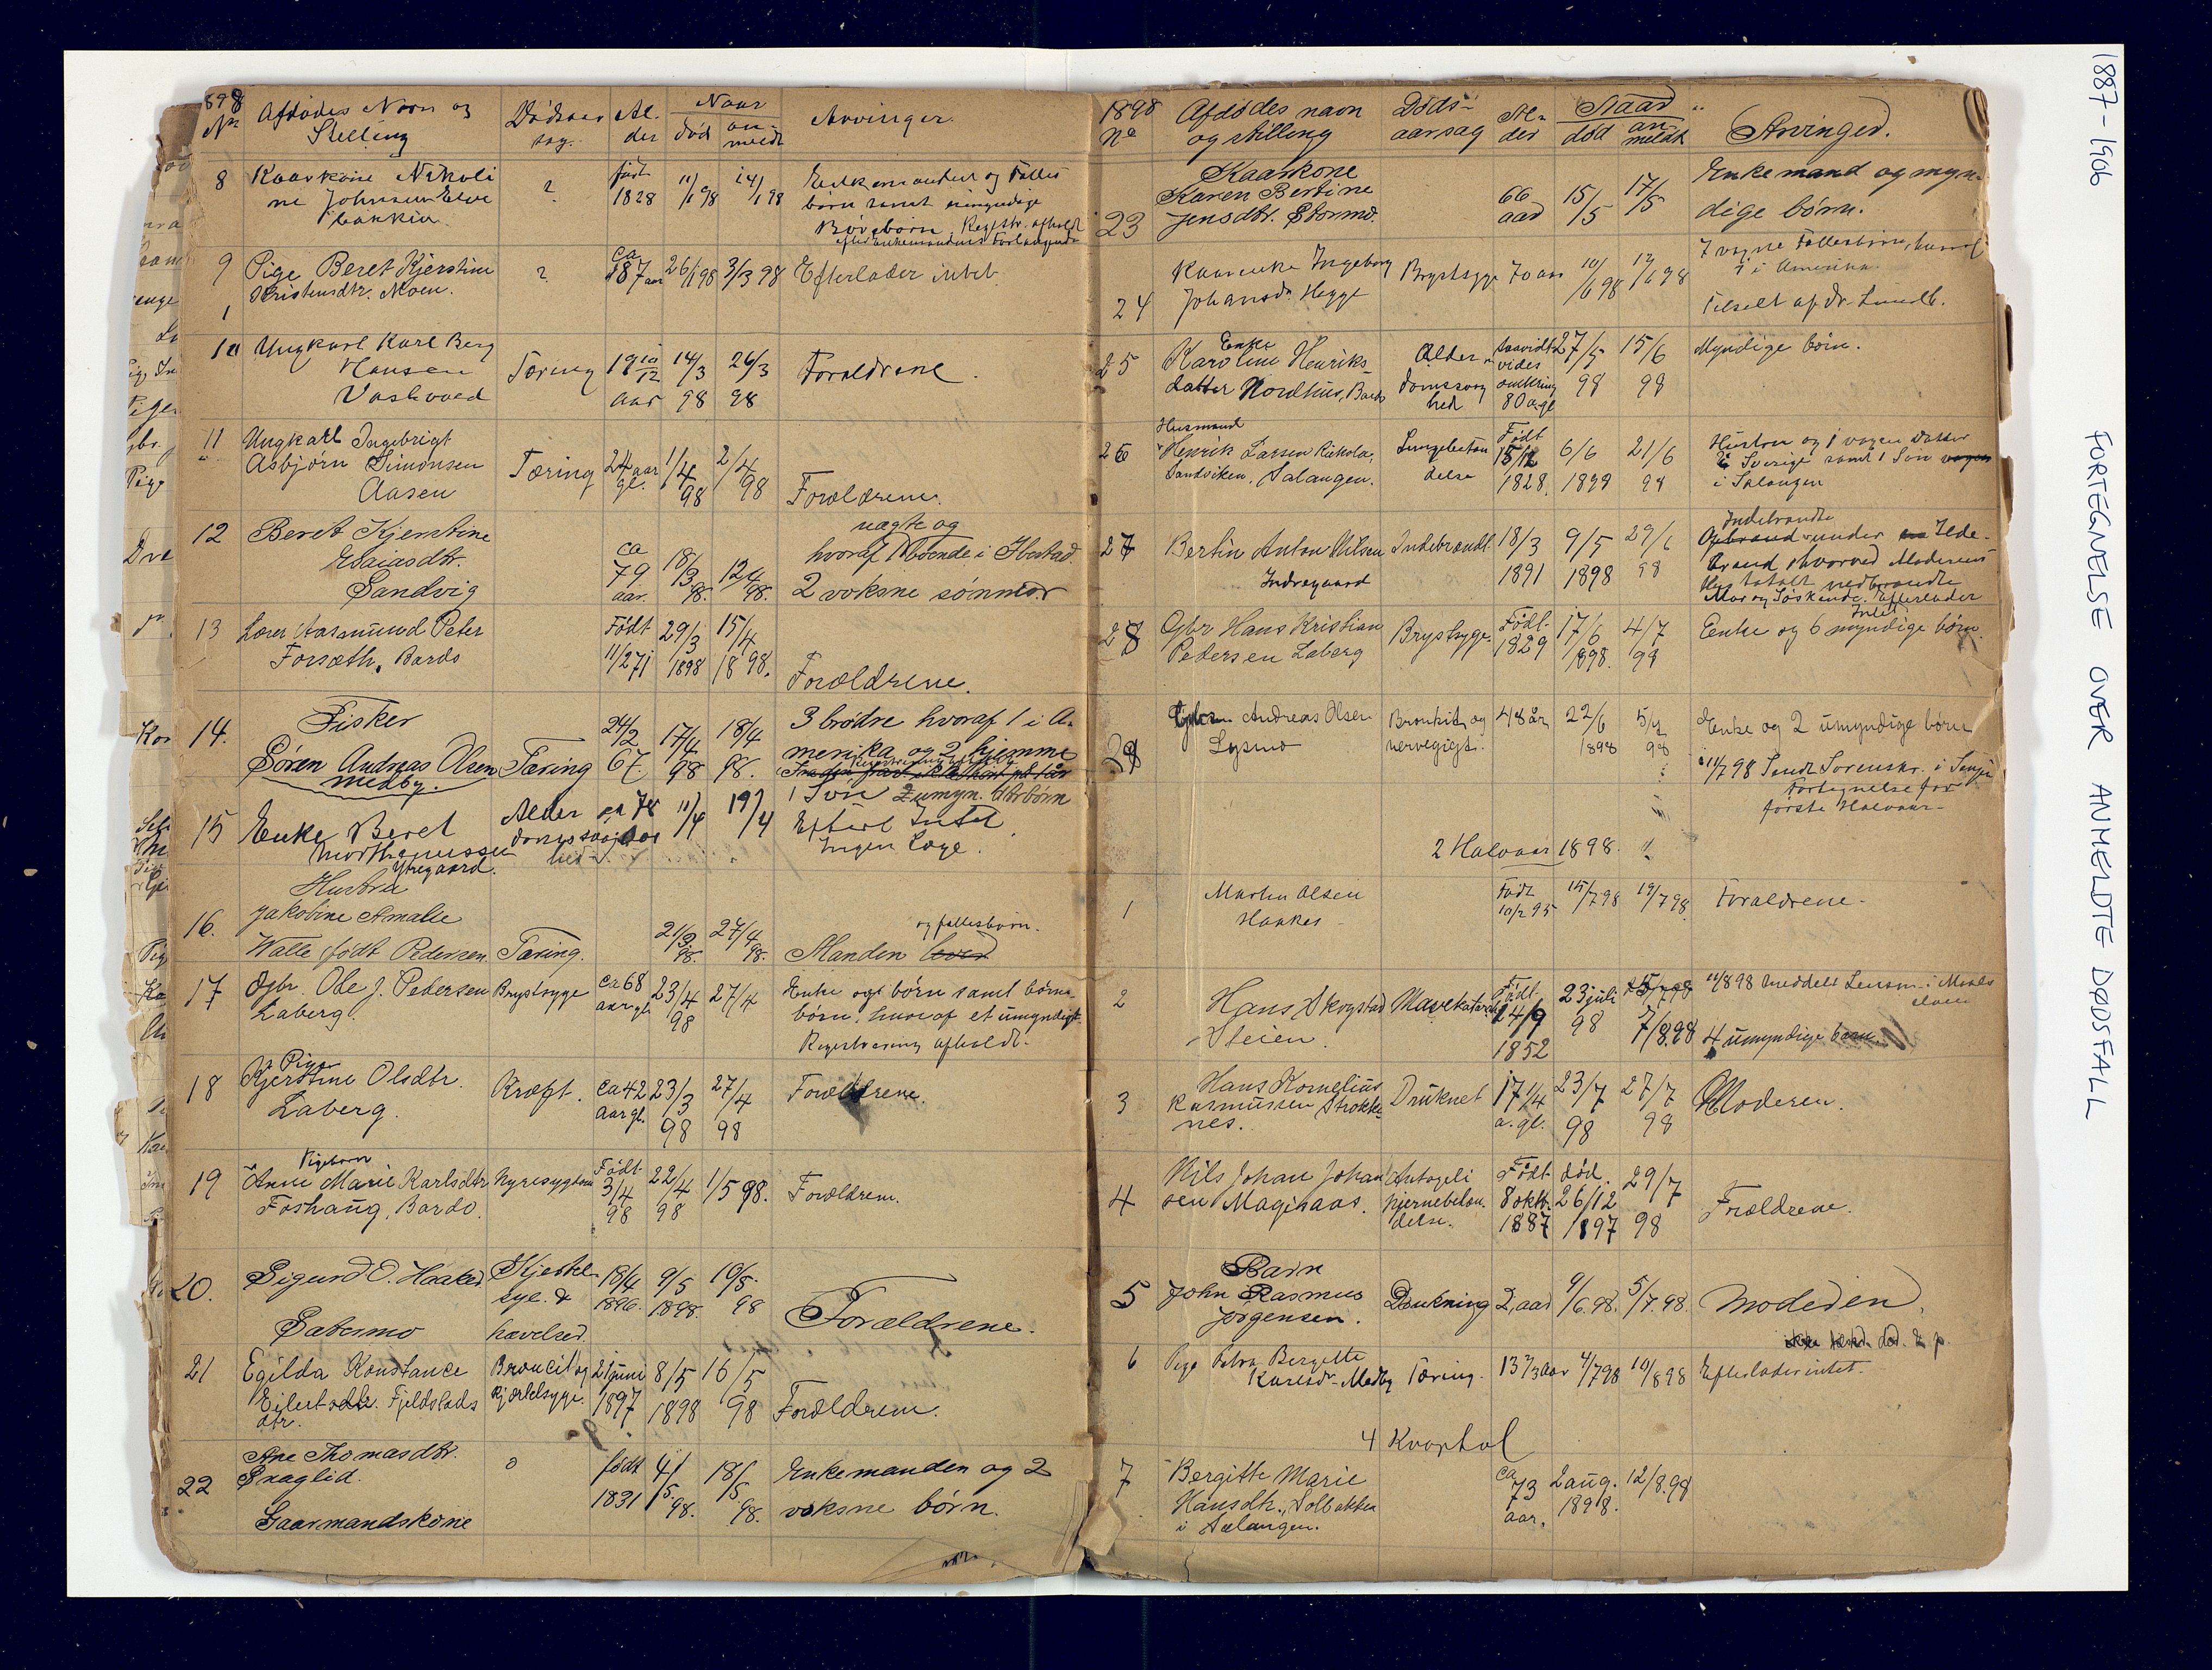 1898
No
Afdødes Navn og
Stilling
Dødsaar
sag.
Al-
der
Naar
død
an-
meldt
Arvinger.
8
Kaarkone Nikoli
ne Johnsen Elve
bakken
?
født
1828
11/1 98
14/1 98
Enkemanden og Fælles
børn samt umyndige
Børnebørn. Registr. afholdt
efter enkemandens Forlangende
9
Pige Beret Kjerstine
Kristensdtr. Moen.
?
ca
87 aar
26/1 98
3/3 98
Efterlader intet.
10
Ungkarl Karl Berg
Hansen
Vashoved
Tæring
19 10/12
aar
14/3
98
26/3
98
Forældrene.
11
Ungkarl Ingebrigt
Asbjørn Simonsen
Aasen
Tæring
24 aar
gl.
1/4
98
2/4
98
Forældrene.
12
Beret Kjerstine
Esaiasdtr.
Sandvig
ca
79
aar.
18/3
98.
12/4
98.
ægte og
hvoraf 1 boende i Ibestad.
2 voksne sønner
13
Lærer Aasmund Peter
Forsæth, Bardo
Født
11/2 71
29/3
1898
15/4
1898.
Forældrene.
14.
Fisker
Søren Andreas Olsen
Medby.
Tæring
24/2
67.
17/4
98
18/4
98.
3 brødre hvoraf 1 i A-
merika og 2 hjemme
15
Enke Beret
Morthenussen
Ytregaard.
Alder
domssvag
hed
ca 78
aar
11/4
19/4
1 Søn 2 umyn. btrbørn
Efterl Intet.
Ingen Læge.
16.
Hustru
Jakobine Amalie
Walle født Pedersen.
Tæring.
21/3
98.
27/4
98.
og fællesbørn.
Manden lever
17
Gbr. Ole J. Pedersen
Laberg.
Brystsyge
ca 68
aar gl.
23/4
98
27/4
Enke og børn samt børne-
børn, hvoraf et umyndigt.
Registrering afholdt.
18
Pige
Kjerstine Olsdtr.
Laberg.
Kræft.
ca 42
aar gl.
23/3
98
27/4
98
Forældrene.
19
Pigebarn
Anne Marie Karlsdtr
Foshaug, Bardo.
Nyresygdom
Født
3/4
98
22/4
98
1/5 98.
Forældrene.
20.
Sigurd O. Haaker
Sætermo
18/4
1896.
9/5
1898.
10/5
98
Forældrene.
21
Egilda Konstance
Eilertsdtr. Fjeldstads
dtr.
Broncit og
Kjærtelsyge.
21 juni
1897
8/5
1898
16/5
98
Forældrene.
22
Ane Thomasdtr.
Snaglid.
Gaarmandskone
født
1831
4/5
98.
18/5
98.
Enkemanden og 2
voksne børn.
1898
No
Afdødes navn
og stilling
Døds-
aarsag
Al-
der
Naar
død
an-
meldt
Arvinger.
23
Kaarkone
Karen Bertine
Jensdtr. Stormo.
66
aar
15/5
17/5
Enkemand og myn-
dige børn.
24
Kaarenke Ingeborg
Johansdr. Hegge
Brystsyge
70 aar
10/6 98
12/6 98
7 vogne Fællesbørn, hvoraf
1 i Amerika.
Tilseet af dr. Lund.
25
Enke
Karoline Henriks-
datter Nordhus, Bardo
Alder-
domssvag
hed
saavidt
vides
omkring
80 a. gl
27/5
98
15/6
98
Myndige børn.
26
Husmand
Henrik Larsen Rikola,
Sandviken, Salangen.
Lungebetæn
delse
Født
15/12
1828.
6/6
1898
21/6
98
Hustru og 1 vogen Datter
i Sverige samt 1 Søn vogen
i Salangen
27
Bertin Anton Nilsen
Indregaard
Indebrændt
18/3
1891
9/5
1898
29/6
98
Indebrændte
under Ilde-
brand hvorved Moderens
Hus totalt nedbrændte
Mor og Søskende. Efterlader
Intet
28
Gbr Hans Kristian
Pedersen Laberg
Brystsyge.
Født.
1829
17/6
1898.
4/7
98
Enke og 6 myndige børn.
29
Andreas Olsen
Lysmo
Bronkit og
nervegigt.
48 år
22/6
1898
5/7
98
Enke og 2 umyndige børn
11/7 98 Sendt Sorenskr. i Senja
Fortegnelse for
første Halvaar-
2 Halvaar 1898.
1
Martin Olsen
Haaker
Født
10/2 95
15/7 98
19/7 98.
Forældrene.
2
Hans Skogstad
Steien.
Mavekatarrh
Født
24/9
1852
23 juli
98
25/7 98
7/8.98
11/8 98 Meddelt Lensm. i Maals
elven
4 umyndige børn.
3
Hans Kornelius
Rasmussen Strokke-
nes.
Druknet
17 1/4
a. gl.
23/7
98
27/7
98
Moderen.
4
Nils Johan Johan
sen Maginaas.
hjernebetæn-
delse.
Født
8 oktb.
1887
død.
26/12
1897
29/7
98
Forældrene.
5
Barn
John Rasmus
Jørgensen.
Drukning
2 aar
9/6.98.
5/7.98.
Moderen.
6
Pige Petra Bergitte
Karlsdr. Medby
Tæring.
13 2/3 aar
4/7 98
10/8 98
Efterlader intet.
4 Kvartal
7
Bergitte Marie
Hansdtr., Solbakken
i Salangen.
ca
73
aar.
2 aug.
1898.
12/8.98
1887-1906 FORTEGNELSE OVER ANMELDTE DØDSFALL